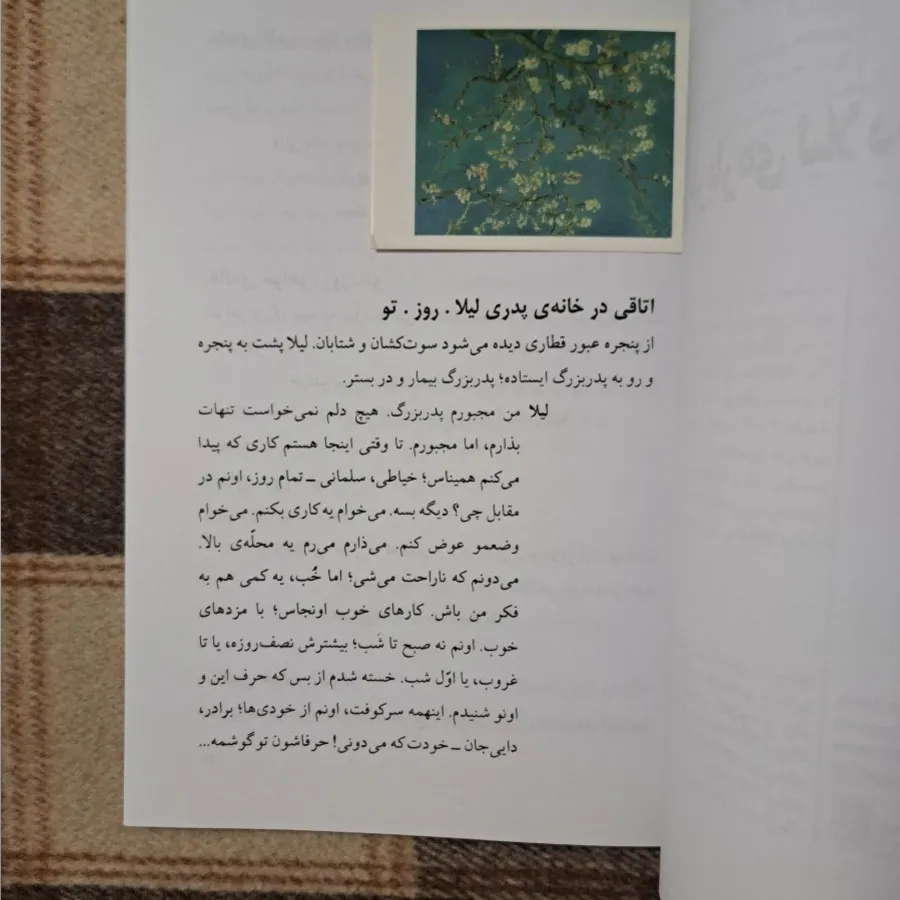 اتاقی در خانه‌ی پدری لیلا . روز . تو
از پنجره عبور قطاری دیده می‌شود سوت‌کشان و شتابان. لیلا پشت به پنجره
و رو به پدربزرگ ایستاده؛ پدربزرگ بیمار و در بستر.
لیلا من مجبورم پدربزرگ. هیچ دلم نمی‌خواست تنهات
بذارم، اما مجبورم. تا وقتی اینجا هستم کاری که پیدا
می‌کنم همیناس؛ خیاطی، سلمانی ــ تمام روز، اونم در
مقابل چی؟ دیگه بسه. می‌خوام یه کاری بکنم. می‌خوام
وضعمو عوض کنم. می‌ذارم می‌رم یه محلّه‌ی بالا.
می‌دونم که ناراحت می‌شی؛ اما خُب، یه کمی هم به
فکر من باش. کارهای خوب اونجاس؛ با مزدهای
خوب. اونم نه صبح تا شَب؛ بیشترش نصف‌روزه، یا تا
غروب، یا اوّل شب. خسته شدم از بس که حرف این و
اونو شنیدم. اینهمه سرکوفت، اونم از خودی‌ها؛ برادر،
دایی‌جان ــ خودت که می‌دونی! حرفاشون تو گوشمه...